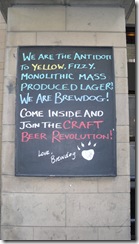 WE ARE THE ANTIDOTE
TO YELLOW, FIZZY,
MONOLITHIC MASS
PRODUCED LAGER!
WE ARE BREWDOG!
COME INSIDE AND
JOIN THE CRAFT
BEER REVOLUTION!
Love,
Brewdog